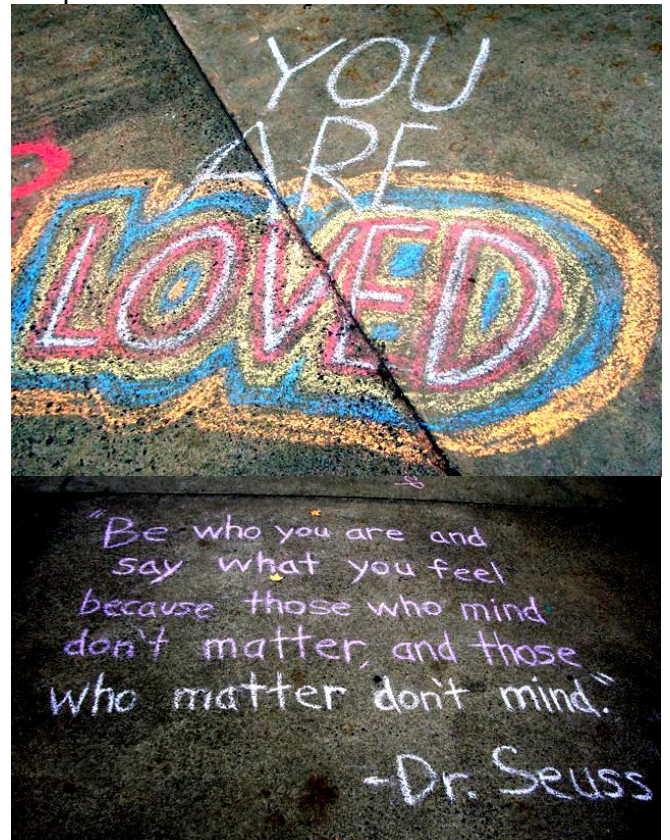 YOU
ARE
LOVED
"Be who you are and
say what you feel
because those who mind
don't matter, and those
who matter don't mind."
-Dr. Seuss